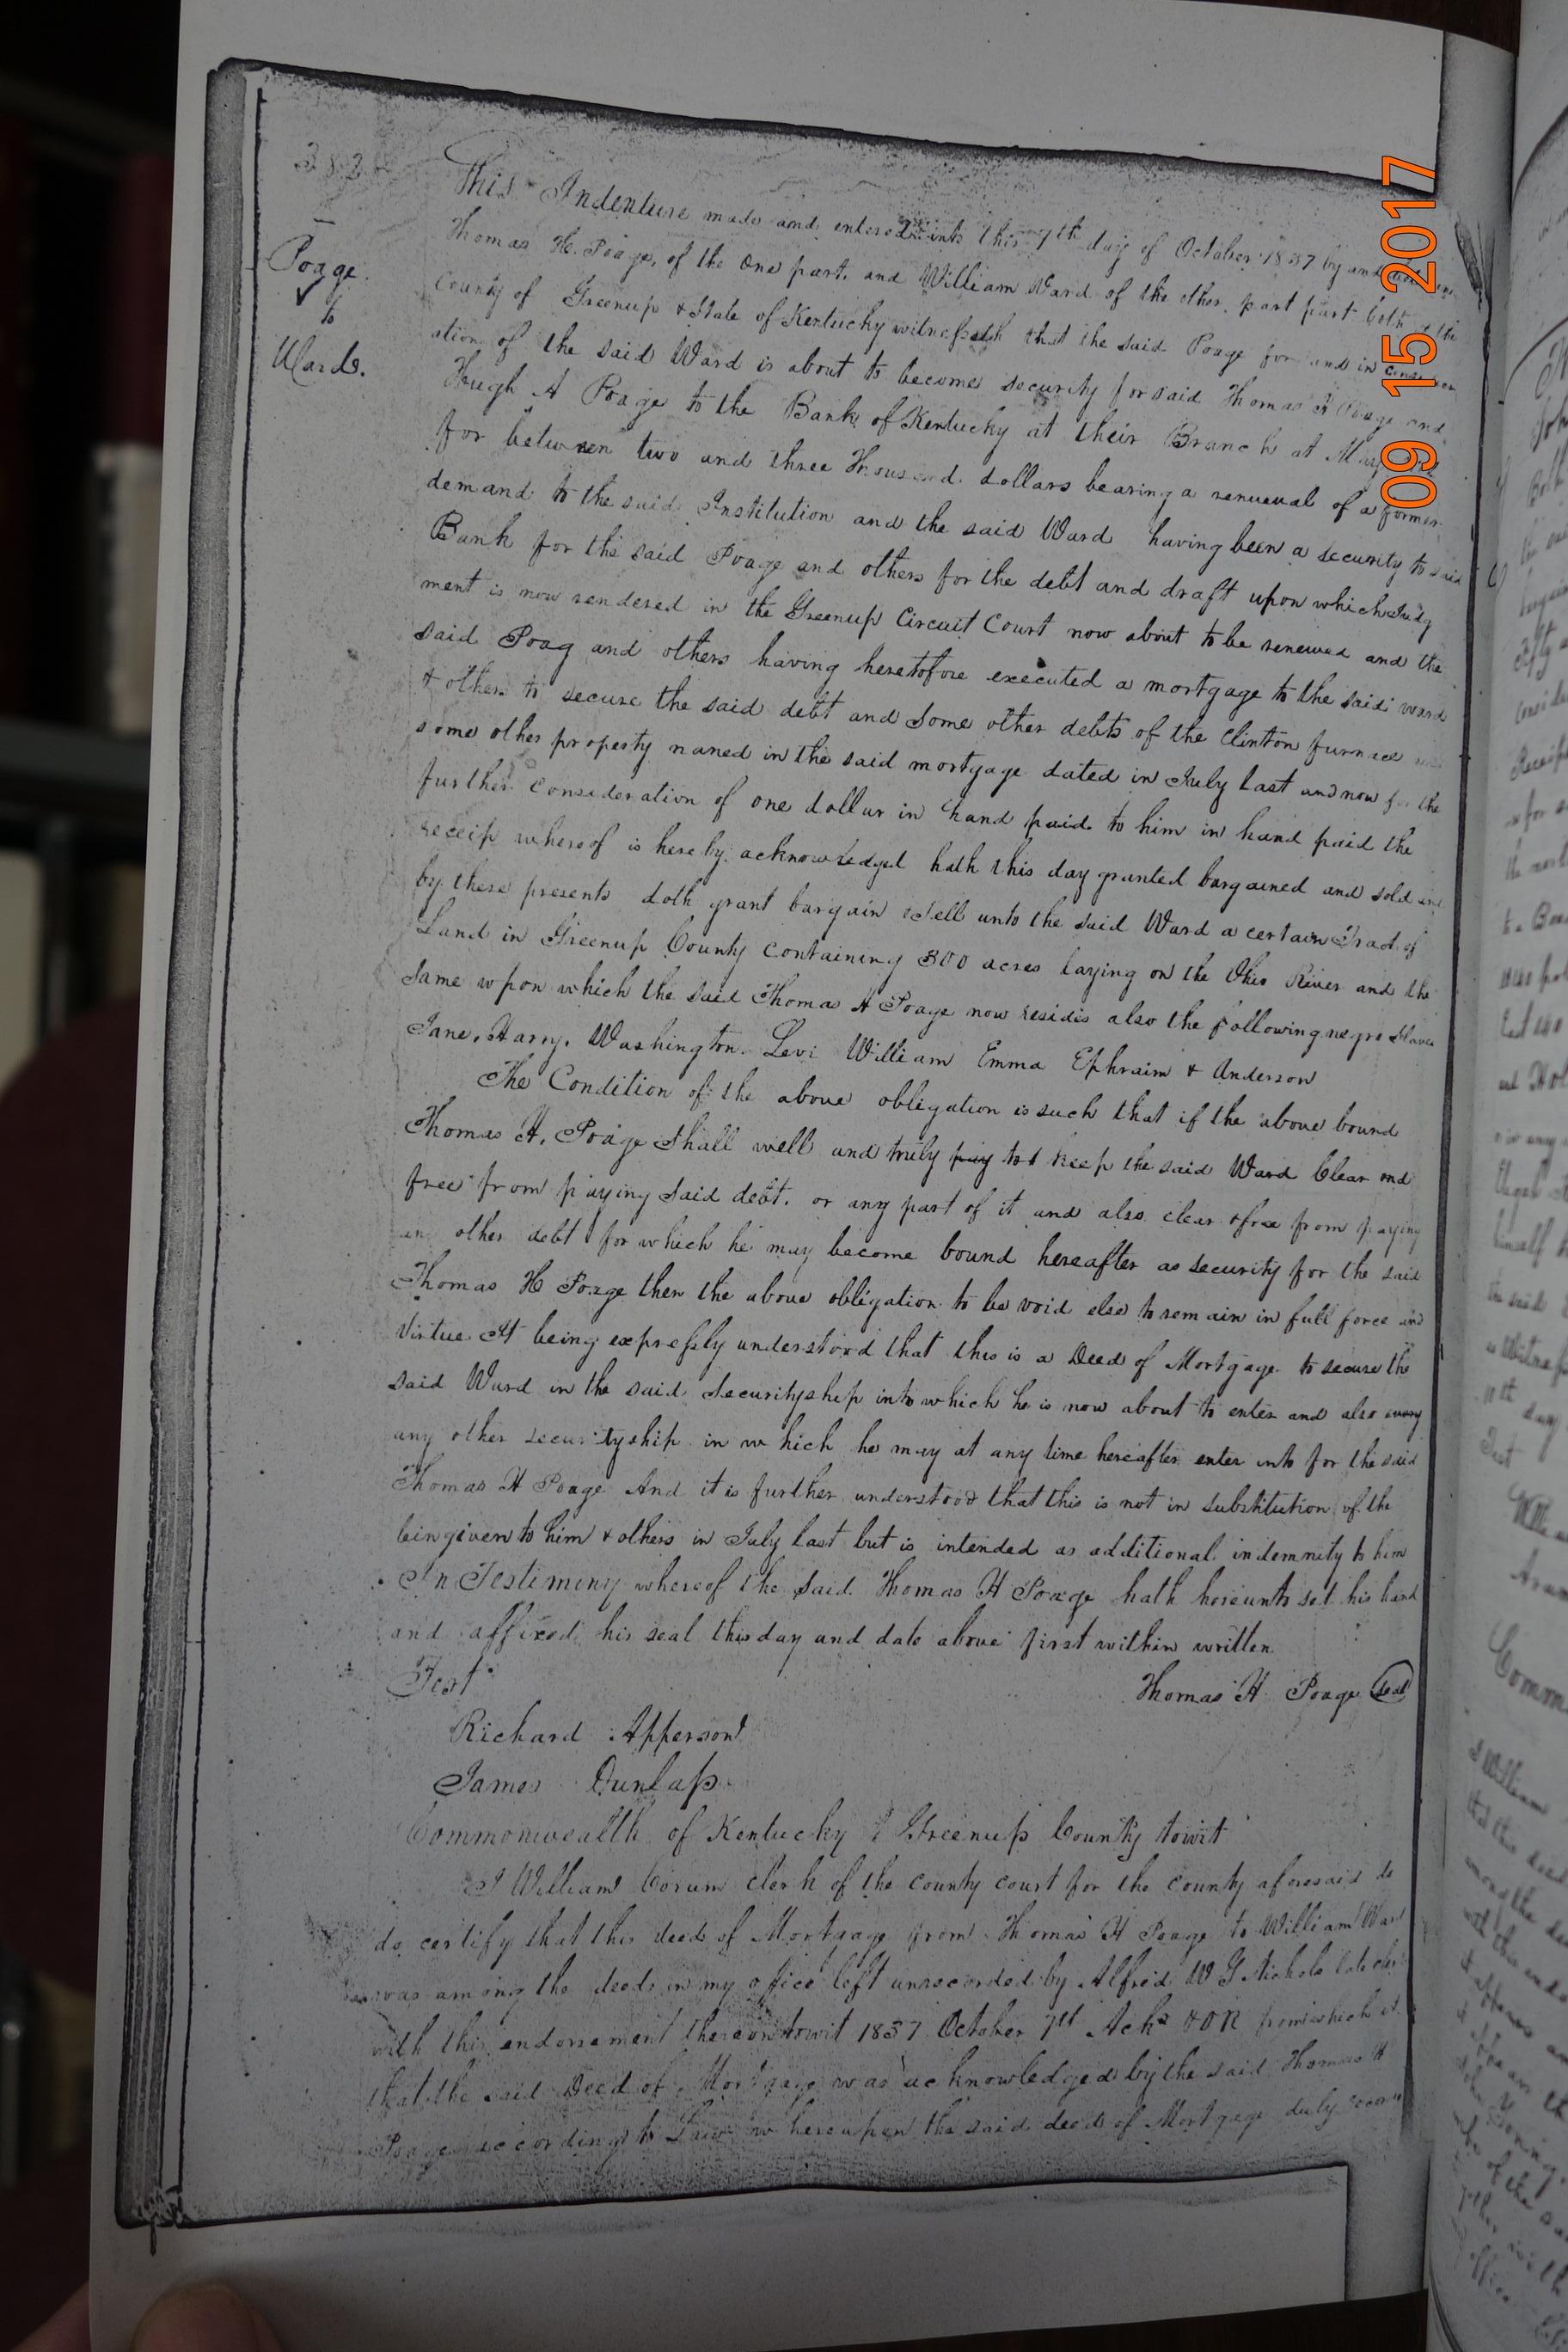 382
Poage
to
Ward.
This Indenture made and entered into this 7th day of October 1837 by and between
Thomas H. Poage, of the one part, and William Ward of the other, part part both of the
County of Greenup & State of Kentucky witnesseth that the said Poage for and in consider
ation of the said Ward is about to become security for said Thomas H Poage and
Hugh A Poage to the Bank of Kentucky at their Branch at
for between two and three thousand dollars bearing a renuewal of a former
demand to the said Institution and the said Ward having been a security to said
Bank for the said Poage and others for the debt and draft upon which Judg
ment is now rendered in the Greenup Circuit Court now about to be renewed and the
said Poag and others having heretofore executed a mortgage to the said ward
& others to secure the said debt and some other debts of the Clinton furnace
some other property named in the said mortgage dated in July last and now for the
further consideration of one dollar in hand paid to him in hand paid the
receip whereof is hereby acknowledged hath this day granted bargained and sold and
by these presents doth grant bargain & sell unto the said Ward a certain Tract of
Land in Greenup County containing 300 acres laying on the Ohio River and the
same upon which the said Thomas H Poage now resides also the following negro slaves
Jane, Harry, Washington. Levi William Emma Ephraim & Anderson
The Condition of the above obligation is such that if the above bound
Thomas H. Poage shall well and truly pay to keep the said Ward clear and
free from paying said debt, or any part of it and also clear & free from paying
any other debt for which he may become bound hereafter as security for the said
Thomas H Poage then the above obligation to be void else to remain in full force and
virtue It being expressly understood that this is a Deed of Mortgage to secure the
said Ward in the said securityship into which he is now about to enter and also every
any other securityship in which he may at any time hereafter enter into for the said
Thomas H Poage And it is further understood that this is not in substitution of the
lein given to him & others in July last but is intended as additional indemnity to him
In Testimony whereof the said Thomas H Poage hath hereunto set his hand
and affixed his seal this day and date above first within written
Test
Thomas H Poage Seal
Richard Apperson
James Dunlap
Commonwealth of Kentucky & Greenup County towit
I William Corum clerk of the county court for the county aforesaid do
do certify that this deed of Mortgage from Thomas H Poage to William Ward
was among the deeds in my office left unrecorded by Alfred W G Nichols late clerk
with this endorsement thereon towit 1837 October 7th Ackd & OR from which it
that the said Deed of Mortgage was acknowledged by the said Thomas H
Poage according to Law whereupon the said deed of Mortgage duly
09 15 2017